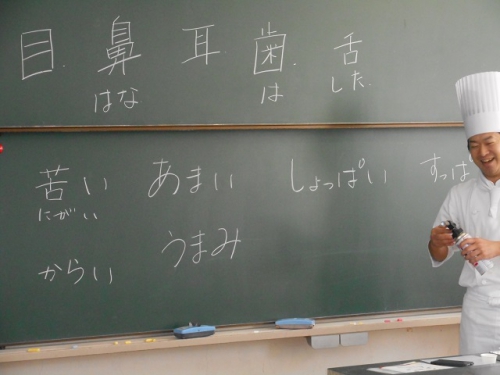 目. 鼻 耳. 歯. 舌
はな は した.
苦い あまい しょっぱい すっぱ
にがい
からい うまみ